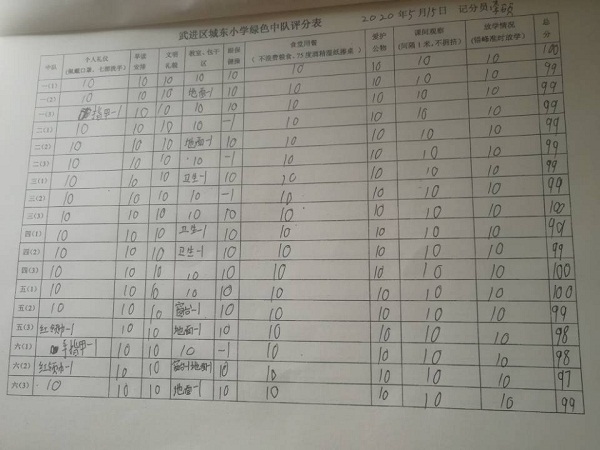 武进区城东小学绿色中队评分表
2020年5月15日 记分员
中队 个人礼仪 早读 文明 教室、包干 眼保 食堂用餐 爱护 课间观察 放学情况 总
(佩戴口罩、七部洗手) 安静 礼貌 区 健操 公物 (间隔1米,不拥挤) (错峰准时放学) 分
一(1) 10 10 10 10 10 10 10 10 10 100
一(2) 10 10 10 地面-1 10 10 10 10 10 99
一(3) 指甲-1 10 10 10 10 10 10 10 10 99
二(1) 10 10 10 10 -1 10 10 10 10 99
二(2) 10 10 10 地面-1 10 10 10 10 10 99
二(3) 10 10 10 10 -1 10 10 10 10 99
三(1) 10 10 10 卫生-1 10 10 10 10 10 99
三(2) 10 10 10 10 -1 10 10 10 10 99
三(3) 10 10 10 10 10 10 10 10 10 100
四(1) 10 10 10 卫生-1 10 10 10 10 10 99
四(2) 10 10 10 卫生-1 10 10 10 10 10 99
四(3) 10 10 10 10 10 10 10 10 10 100
五(1) 10 10 10 10 10 10 10 10 10 100
五(2) 10 10 10 窗台-1 10 10 10 10 10 99
五(3) 红领巾-1 10 10 地面-1 10 10 10 10 10 98
六(1) 手指甲-1 10 10 10 -1 10 10 10 10 98
六(2) 红领巾-1 10 10 窗台-1地面-1 10 10 10 10 10 97
六(3) 10 10 10 地面-1 10 10 10 10 10 99